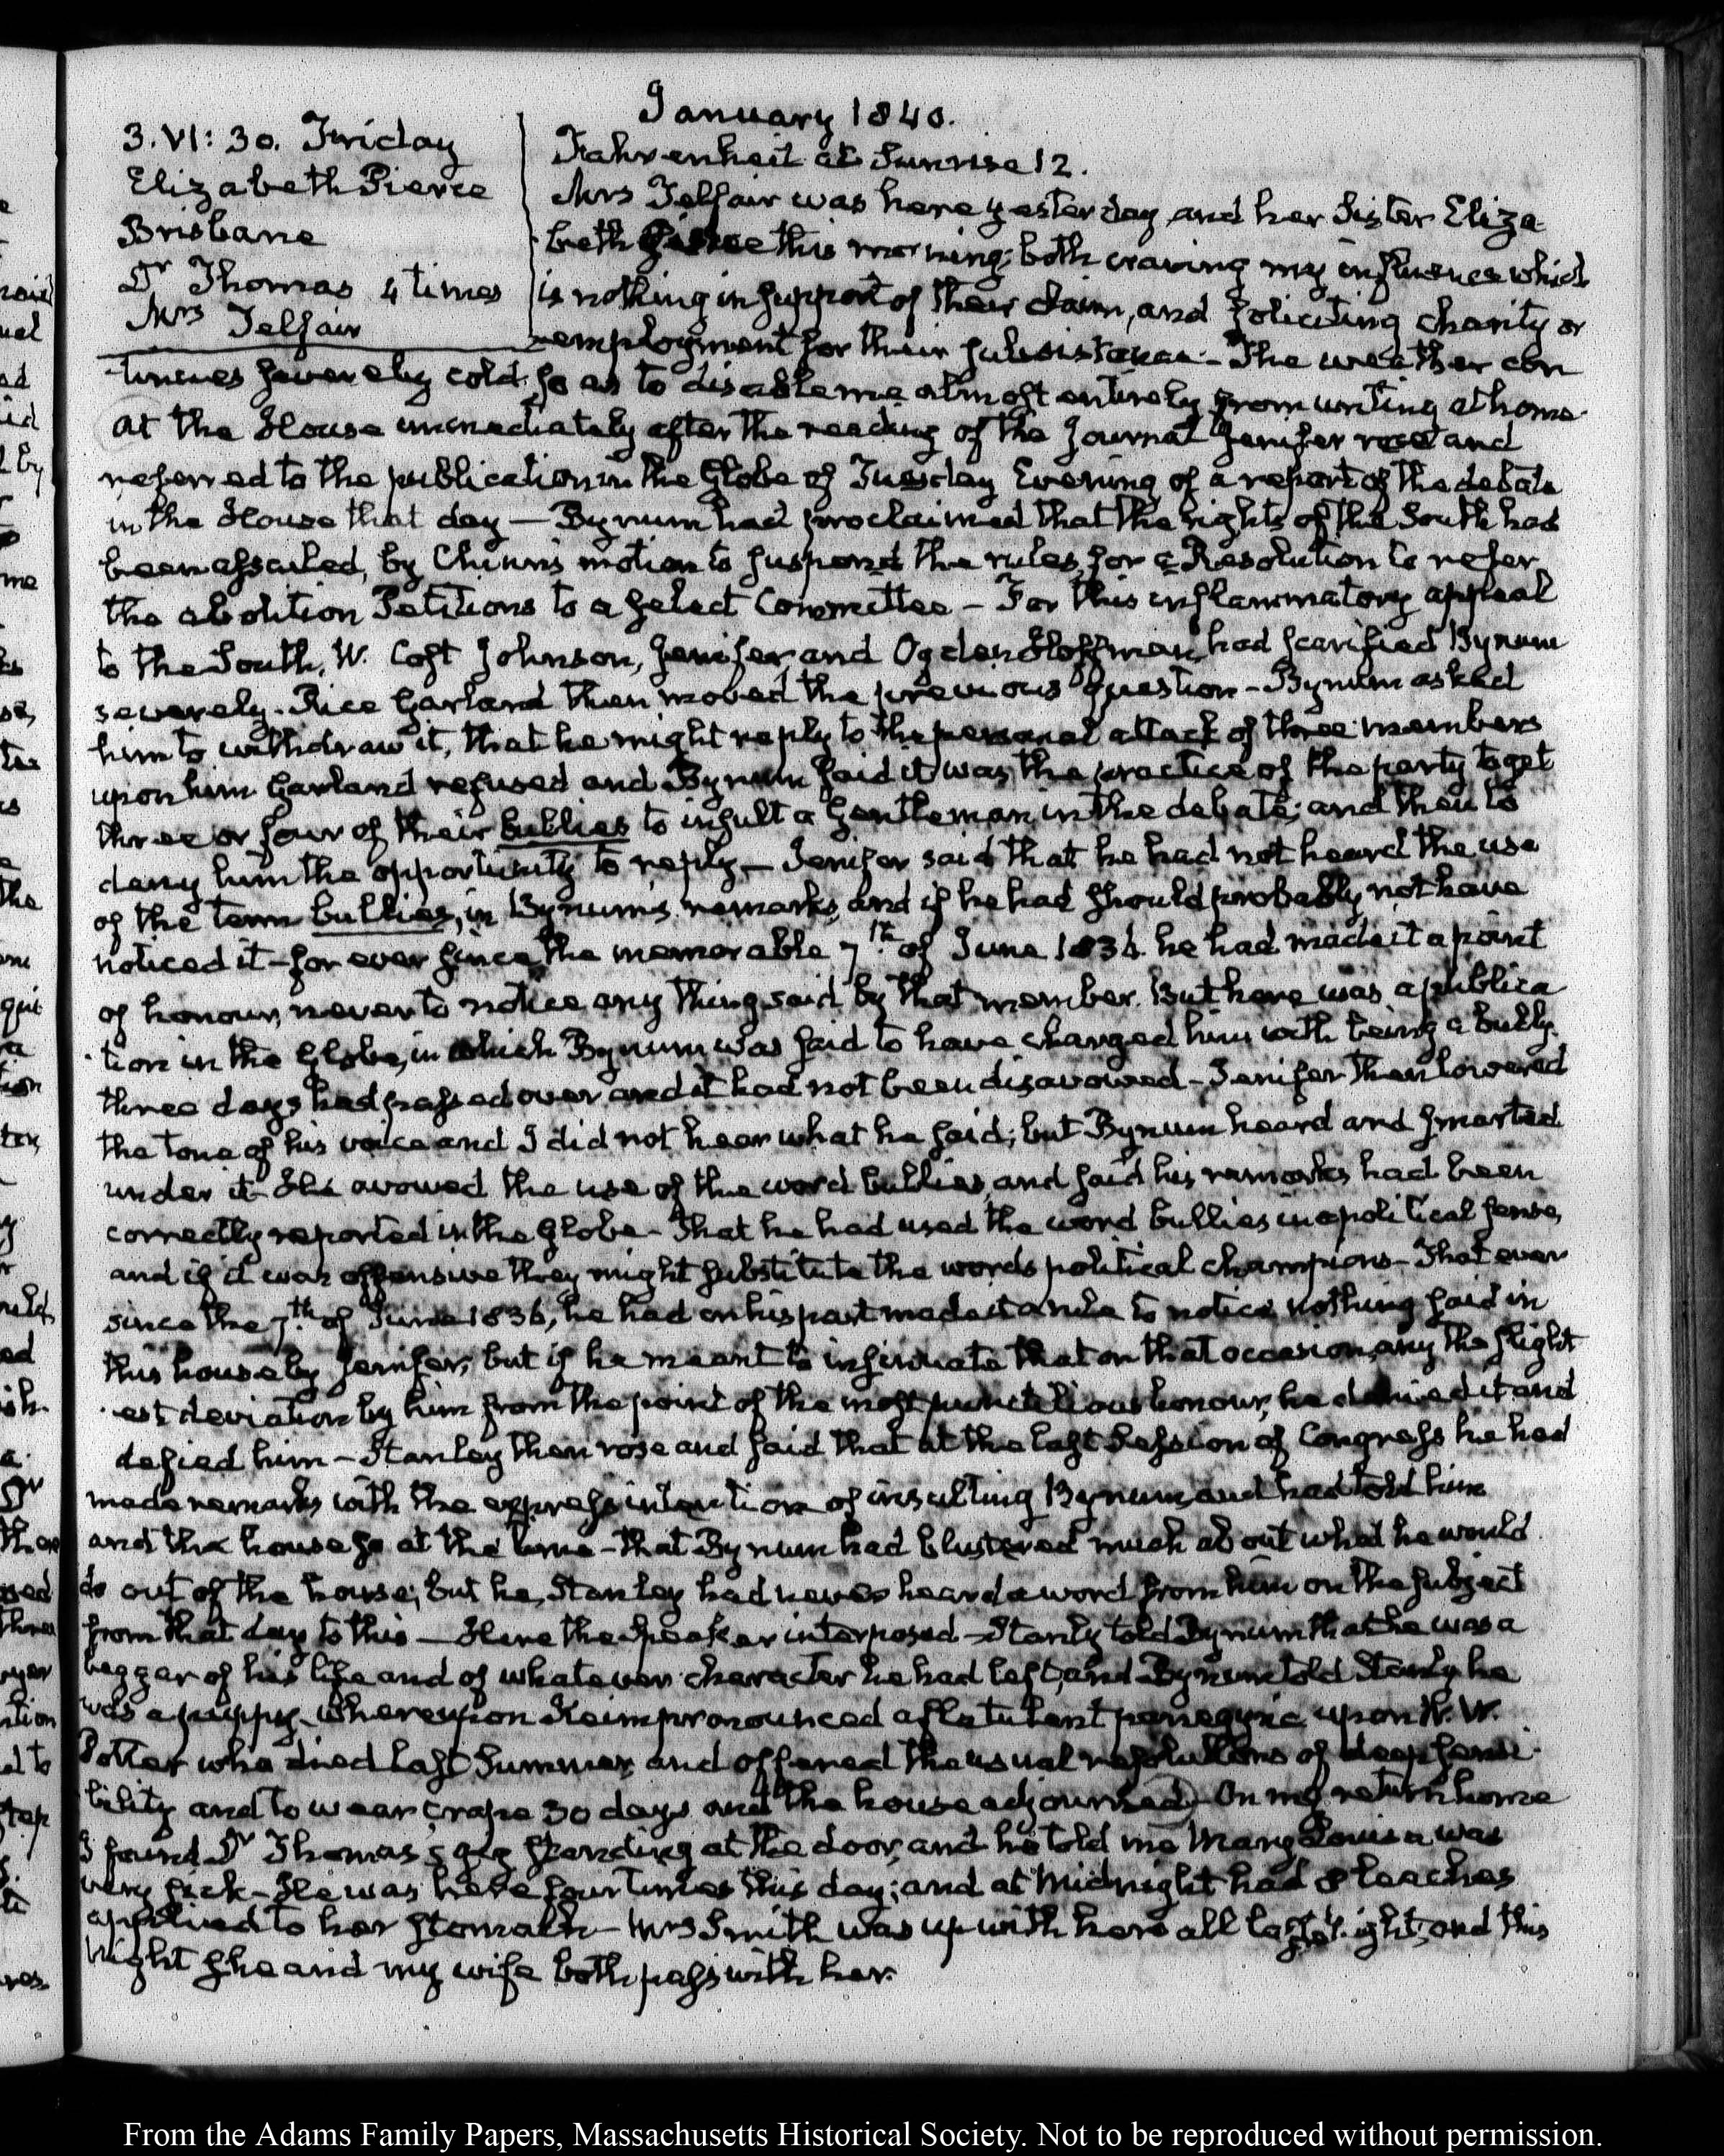 January 1840.
3. VI: 30. Friday
Elizabeth Pierce
Brisbane
Dr Thomas 4 times
Mrs Telfair
Fahrenheit at Sunrise 12.
Mrs Telfair was here yesterday and her Sister Eliza-
beth Pierce this morning; both craving my influence which
is nothing in support of their claim, and soliciting charity or
employment for their subsistence — The weather con
tinues severely cold, so as to disable me almost entirely from writing at home.
At the House immediately after the reading of the Journal Jenifer rose and
referred to the publication in the Globe of Tuesday Evening of a report of the debate
in the House that day — Bynum had proclaimed that the rights of the South had
been assailed, by Chinn's motion to suspend the rules for a Resolution to refer
the abolition Petitions to a select Committee — For this inflammatory appeal
to the South, W. Cost Johnson, Jenifer and Ogden Hoffman, had scarified Bynum
severely. Rice Garland then moved the previous question — Bynum asked
him to withdraw it, that he might reply to the personal attack of three members
upon him Garland refused and Bynum said it was the practice of the party to get
three or four of their bullies to insult a Gentleman in the debate; and then to
deny him the opportunity to reply — Jenifer said that he had not heard the use
of the term bullies, in Bynum's remarks, and if he had should probably not have
noticed it — for ever since the memorable 7th of June 1836. he had made it a point
of honour, never to notice any thing said by that member. But here was a publica
tion in the Globe, in which Bynum was said to have charged him with being a bully.
three days had passed over and it had not been disavowed — Jenifer then lowered
the tone of his voice and I did not hear what he said; but Bynum heard and smarted
under it — He avowed the use of the word bullies, and said his remarks had been
correctly reported in the Globe — That he had used the word bullies in a political sense,
and if it was offensive they might substitute the words political champions — That ever
since the 7th of June 1836, he had on his part made it a rule to notice nothing said in
this house by Jenifer; but if he meant to insinuate that on that occasion, any the slight
est deviation by him from the point of the most punctilious honour, he denied it and
defied him — Stanley then rose and said that at the last Session of Congress he had
made remarks with the express intention of insulting Bynum, and had told him
and the house so at the time — that Bynum had blustered much about what he would
do out of the house; but he, Stanley had never heard a word from him on the subject
from that day to this — Here the Speaker interposed — Stanly told Bynum that he was a
beggar of his life and of whatever character he had left, and Bynum told Stanly he
was a puppy — whereupon Keim pronounced a flatulent panegyric upon W. W.
Potter who died last Summer, and offered the usual resolutions of deep sensi-
bility and to wear crape 30 days and the house adjourned) On my return home
I found Dr Thomas's gig standing at the door, and he told me Mary Louisa was
very sick — He was here four times this day; and at Midnight had 8 leaches
applied to her stomach — Mrs Smith was up with here all last night, and this
Night she and my wife both pass with her.
From the Adams Family Papers, Massachusetts Historical Society. Not to be reproduced without permission.